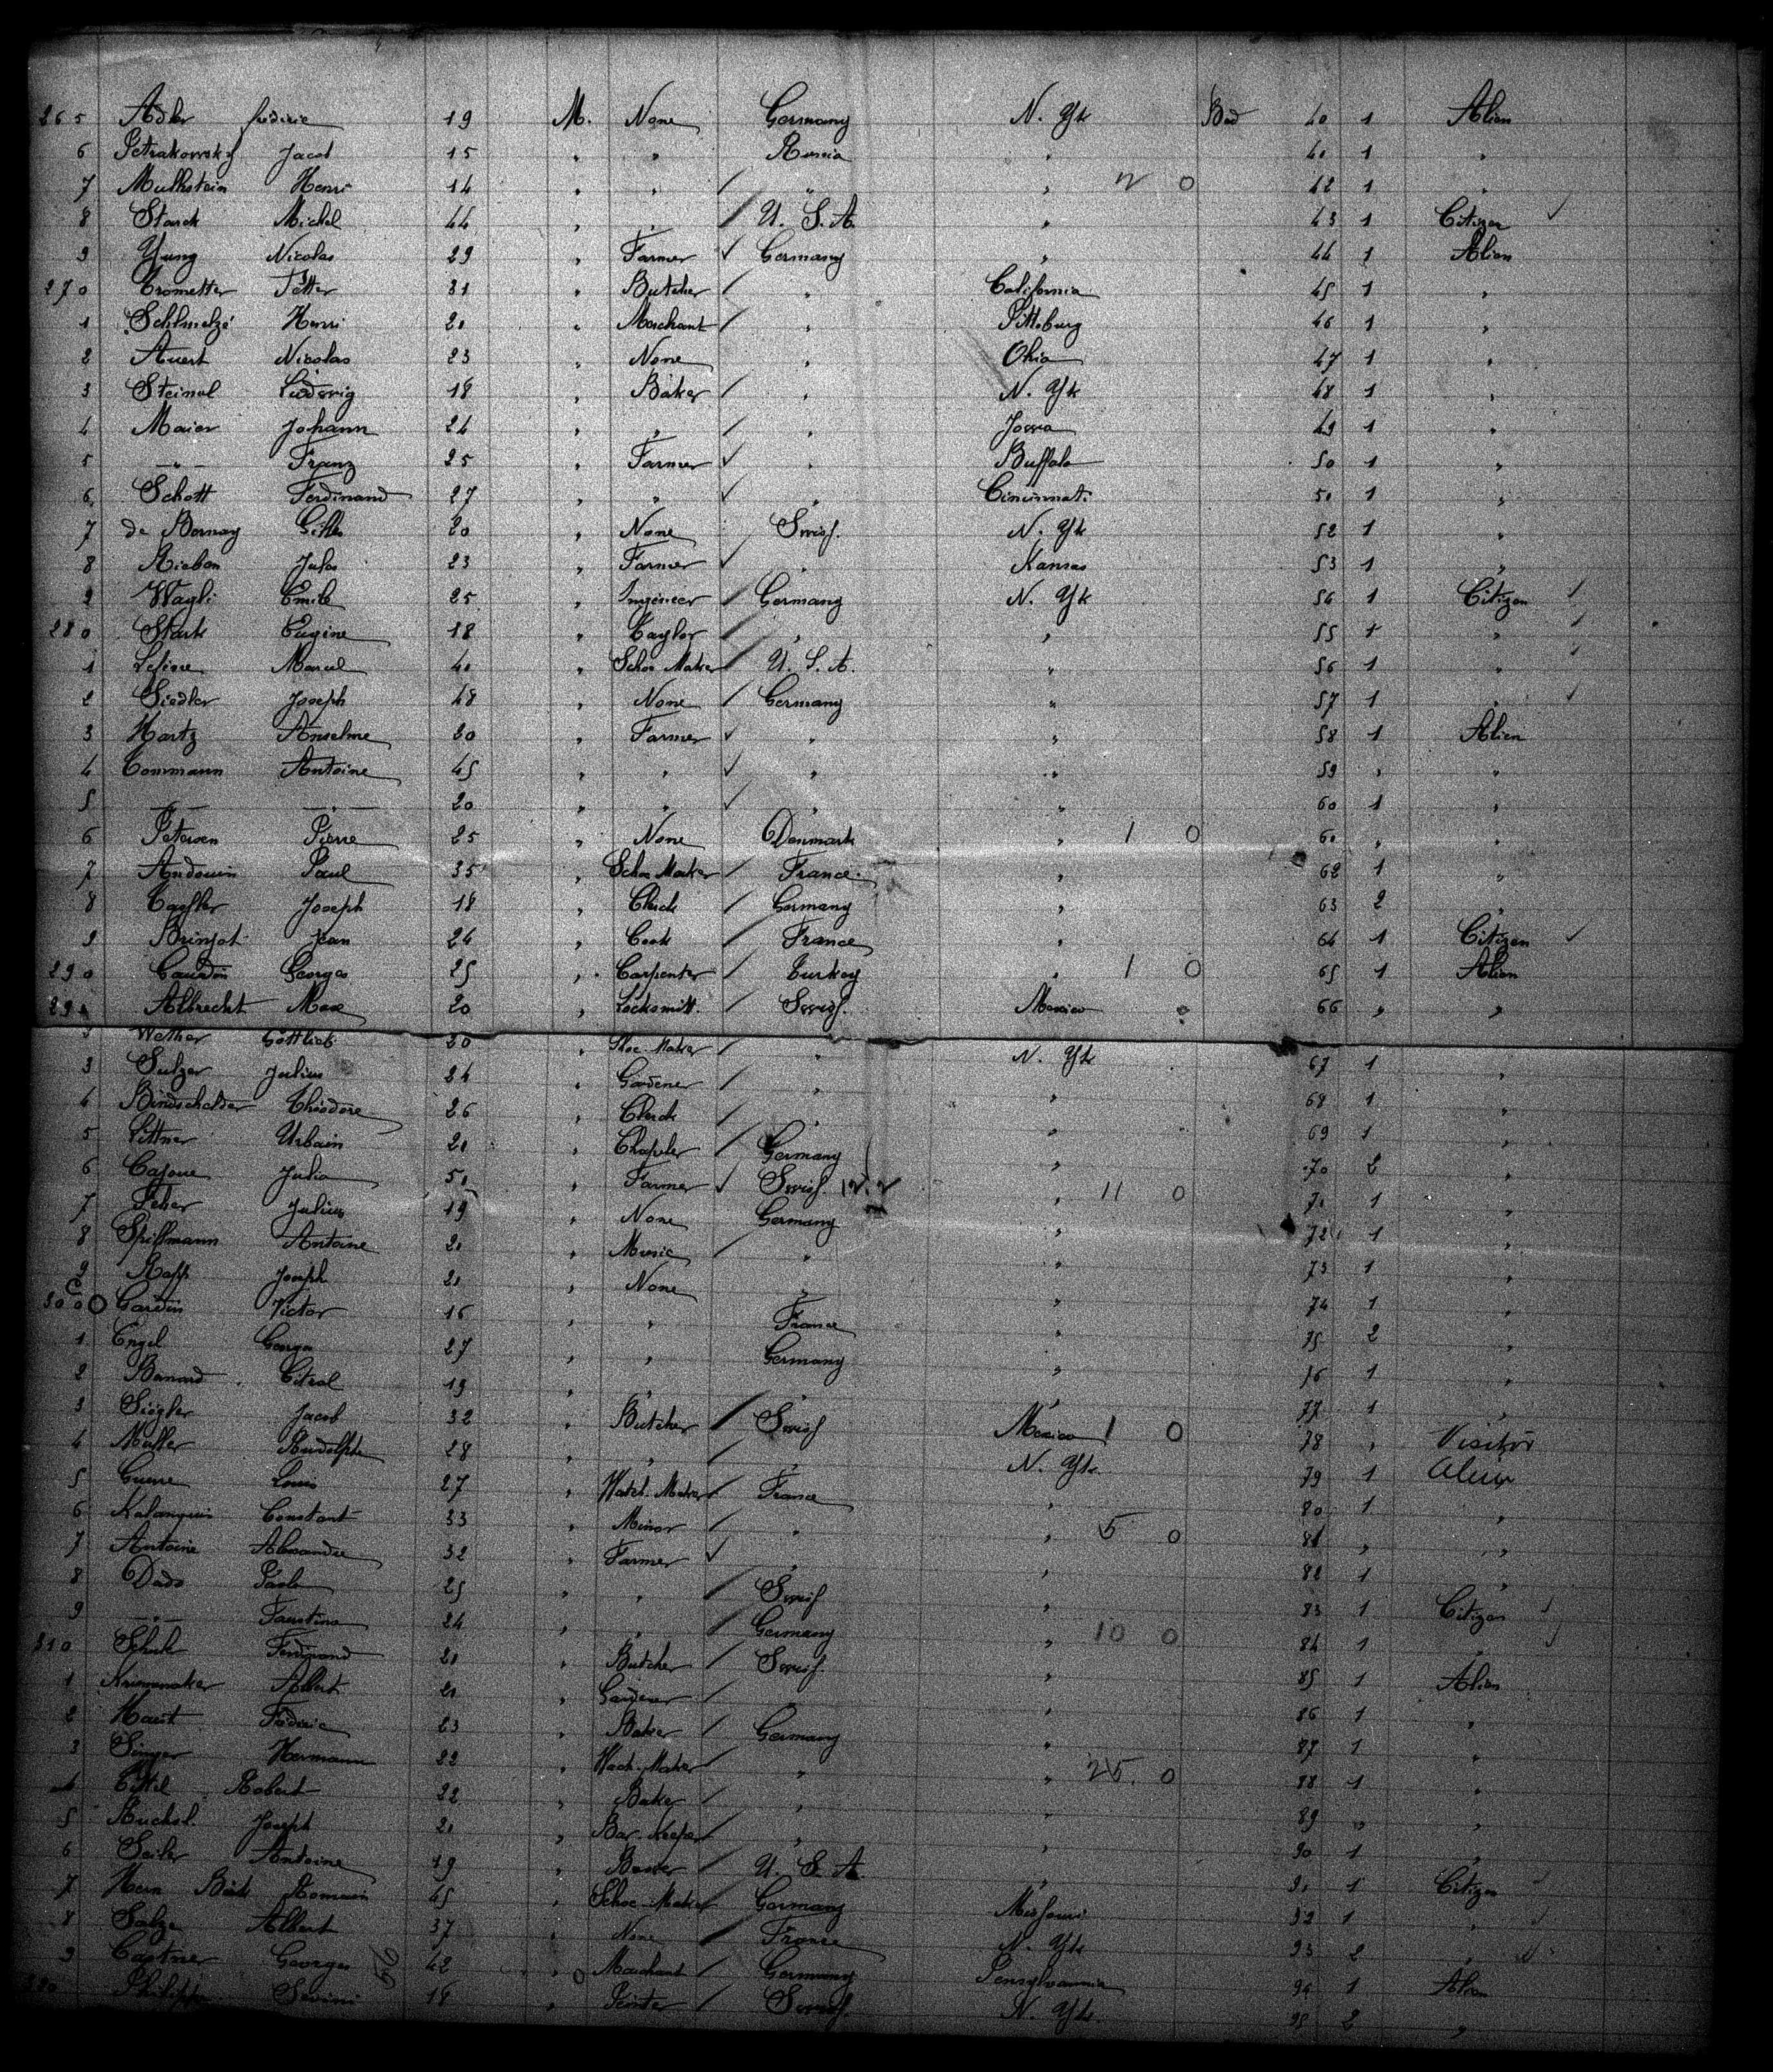 265 Adler frederic 19 M. None Germany N. Yk Bad 40 1 Alien
6 Petrakowsky Jacob 15 " " Russia " 41 1 "
7 Mulhstein Henri 14 " " " " 20 42 1 "
8 Starck Michel 44 " " U. S. A. " 43 1 Citizen
9 Yung Nicolas 29 " Farmer Germany " 44 1 Alien
270 Crometter Petter 31 " Butcher " California 45 1 "
1 Schlmelzé Henri 21 " Marchant " Pittsburg 46 1 "
2 Auert Nicolas 23 " None " Ohio 47 1 "
3 Steimel Ludwig 18 " Baker " N. Yk 48 1 "
4 Maier Johann 24 " " " Jowa 49 1 "
5 —"— Franz 25 " Farmer " Buffalo 50 1 "
6 Schott Ferdinand 27 " " " Cincinnati 51 1 "
7 de Bornay 20 " None Swiss. N. Yk 52 1 "
8 Rieben Jules 23 " Farmer " Kansas 53 1 "
9 Wagli Emile 25 " Ingineer Germany N. Yk 54 1 Citizen
280 Stark Eugine 18 " Taylor " " 55 1 "
1 Marcel 41 " Schoe Maker U. S. A. " 56 1 "
2 Siedler Joseph 48 " None Germany " 57 1 "
3 Hartz Anselme 30 " Farmer " " 58 1 Alien
4 Commann Antoine 45 " " " " 59 " "
5 —"— —"— 20 " " " " 60 1 "
6 Petersen Pierre 25 " None Denmark " 1 0 61 " "
7 Andouin Paul 35 " Schoe Maker France " 62 1 "
8 Joseph 18 " Clerck Germany " 63 2 "
9 Jean 24 " Cook France " 64 1 Citizen
290 Georges 25 " Carpenter Turkey " 1 0 65 1 Alien
291 Albrecht Max 20 " Locksmitt. Swiss. Mexico 66 " "
2 Wether Gottlieb 20 " Shoe Maker " N. Yk 67 1 "
3 Sulzer Julius 24 " Gardener " " 68 1 "
4 Bindschedler Théodore 26 " Clerck " " 69 1 "
5 Littner Urbain 21 " Germany " 70 2 "
6 Julia 51 " Farmer Swiss. " 11 0 71 1 "
7 Feher Julius 19 " None Germany " 72 1 "
8 Spillmann Antoine 21 " Music " " 73 1 "
9 Rapp Joseph 21 " None " " 74 1 "
300 Gardin Victor 16 " " France " 75 2 "
1 Engel Georges 27 " " Germany " 76 1 "
2 Bernard Citral 19 " " " " 77 1 "
3 Siegler Jacob 32 " Butcher Swiss Mexico 1 0 78 " Visitor
4 Muller Rudolphe 28 " " " N. Yk. 79 1 Alien
5 Louis 27 " Watch Maker France " 80 1 "
6 Constant 33 " Minor " " 5 0 81 " "
7 Antoine Alexandre 32 " Farmer " " 82 1 "
8 Dado Paolo 25 " " Swiss " 83 1 Citizen
9 —"— Faustino 24 " " Germany " 10 0 84 1 "
310 Ferdinand 21 " Butcher Swiss. " 85 1 Alien
1 Albert 21 " Gardener " " 86 1 "
2 Fréderic 23 " Baker Germany " 87 1 "
3 Singer Hermann 22 " Wach-Maker " " 25. 0 88 1 "
4 Robert 22 " Baker " " 89 " "
5 Joseph 21 " Bar-Keeper " " 90 1 "
6 Seiler Antoine 19 " U. S. A. " 91 1 Citizen
7 Romain 45 " Schoe-Maker Germany Missouri 92 1 "
8 Albert 37 " None France N. Yk 93 2 "
9 Castner Georges 42 " Marchant Germany Pensylvannia 94 1 Alien
320 18 " Swiss. N. Yk. 95 2 "